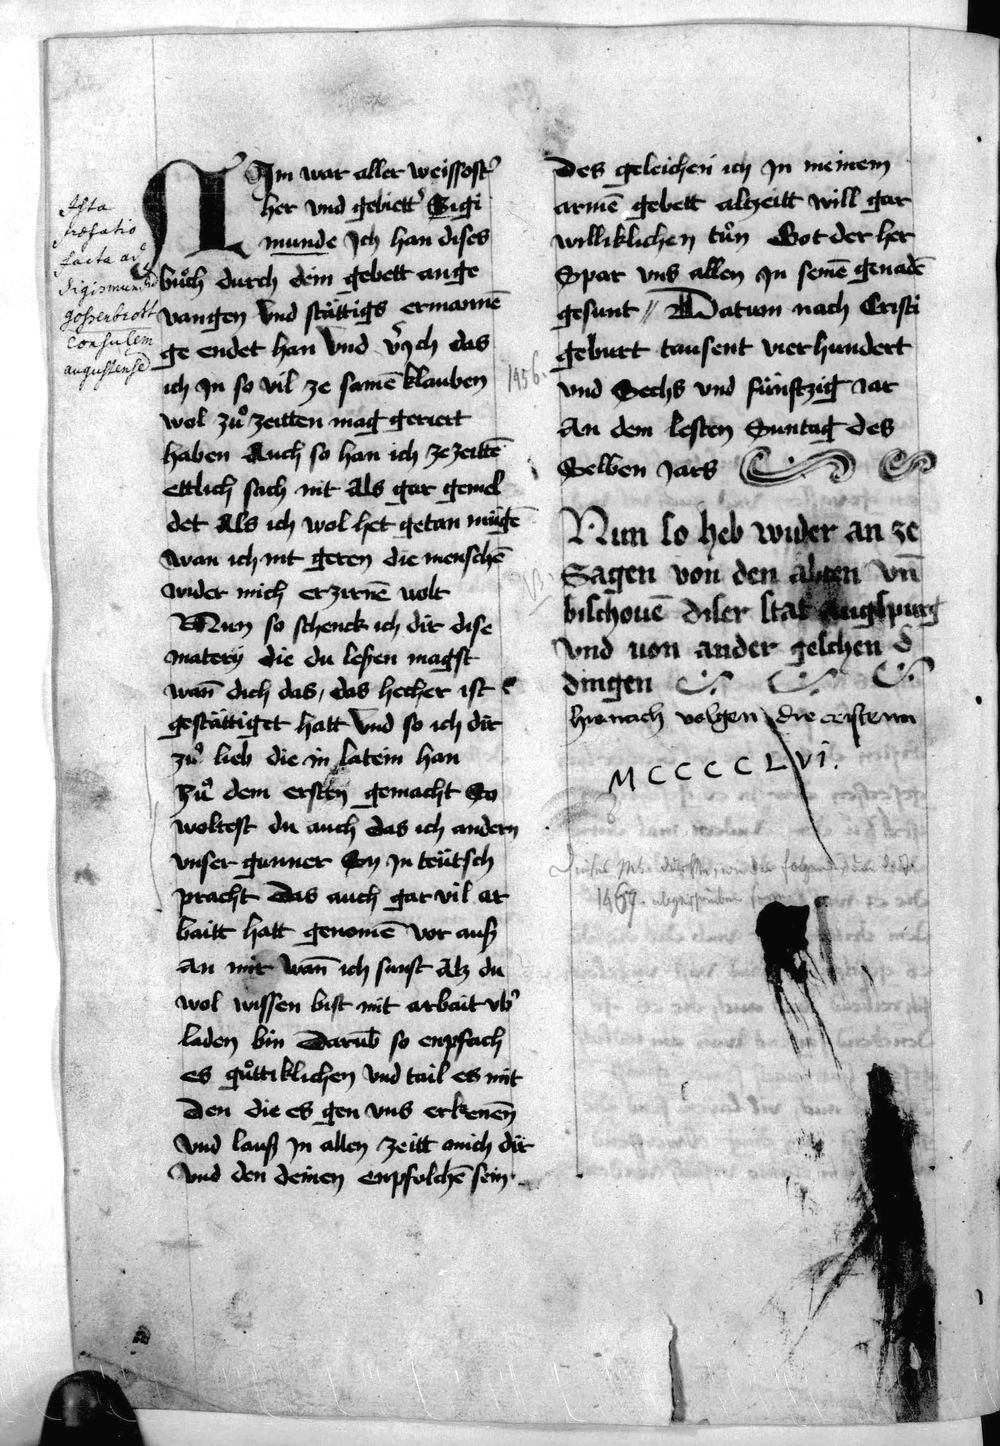 Ista
præfatio
facta ad
Sigismundū
gossenbrott
Consulem
augustensē
NIm war aller weissost'
her vnd gebiett' Sigi
munde Ich han dises
bůch durch dein gebett ange
vangen vnd stättigs ermannē
ge endet han vnd v̈ch das
ich In so vil ze samē klauben
wol zů zeitten mag geriert
haben Auch so han ich ze zeittē
ettlich sach nit Als gar gemel
det Als ich wol het getan mügē
wan ich nit geren die menschē
wider mich erzirnē wolt
Nun so schenck ich dir dise
matery die du lesen magst
wañ dich das, das hecher ist
gestättiget hatt vnd so ich dir
zů lieb die in latein han
Zů dem ersten gemacht So
woltest du auch das ich andern
vnser gunner Sy In teütsch
pracht Das auch gar vil ar
baitt hatt genomē vor auß
an mir wañ ich sunst Alz du
wol wissen bist mit arbait vb'
laden bin Darūb so enpfach
es gůttiklichen vnd tail es mit
Den die es gen vns erkenen̄
vnd lauß In allen zeitt mich dir
vnd den deinen enpfolchē sein
Des geleichen ich In meinem
armē gebett alzeitt will gar
williklichen tůn Got der her
Spar vns allen In seinē genadē
gesunt // Datum nach Cristi
geburt tausent vierhundert
1456.
vnd Sechs vnd fünftzig Jar
An dem lesten Suntag des
Selben Jars
Nun so heb wider an ze
Sagen von den äbten vn̄
bischouē diser stat Augspurg
vnd von ander geschen d
dingen
hie nach volgen die
MCCCCLVI.
1467.